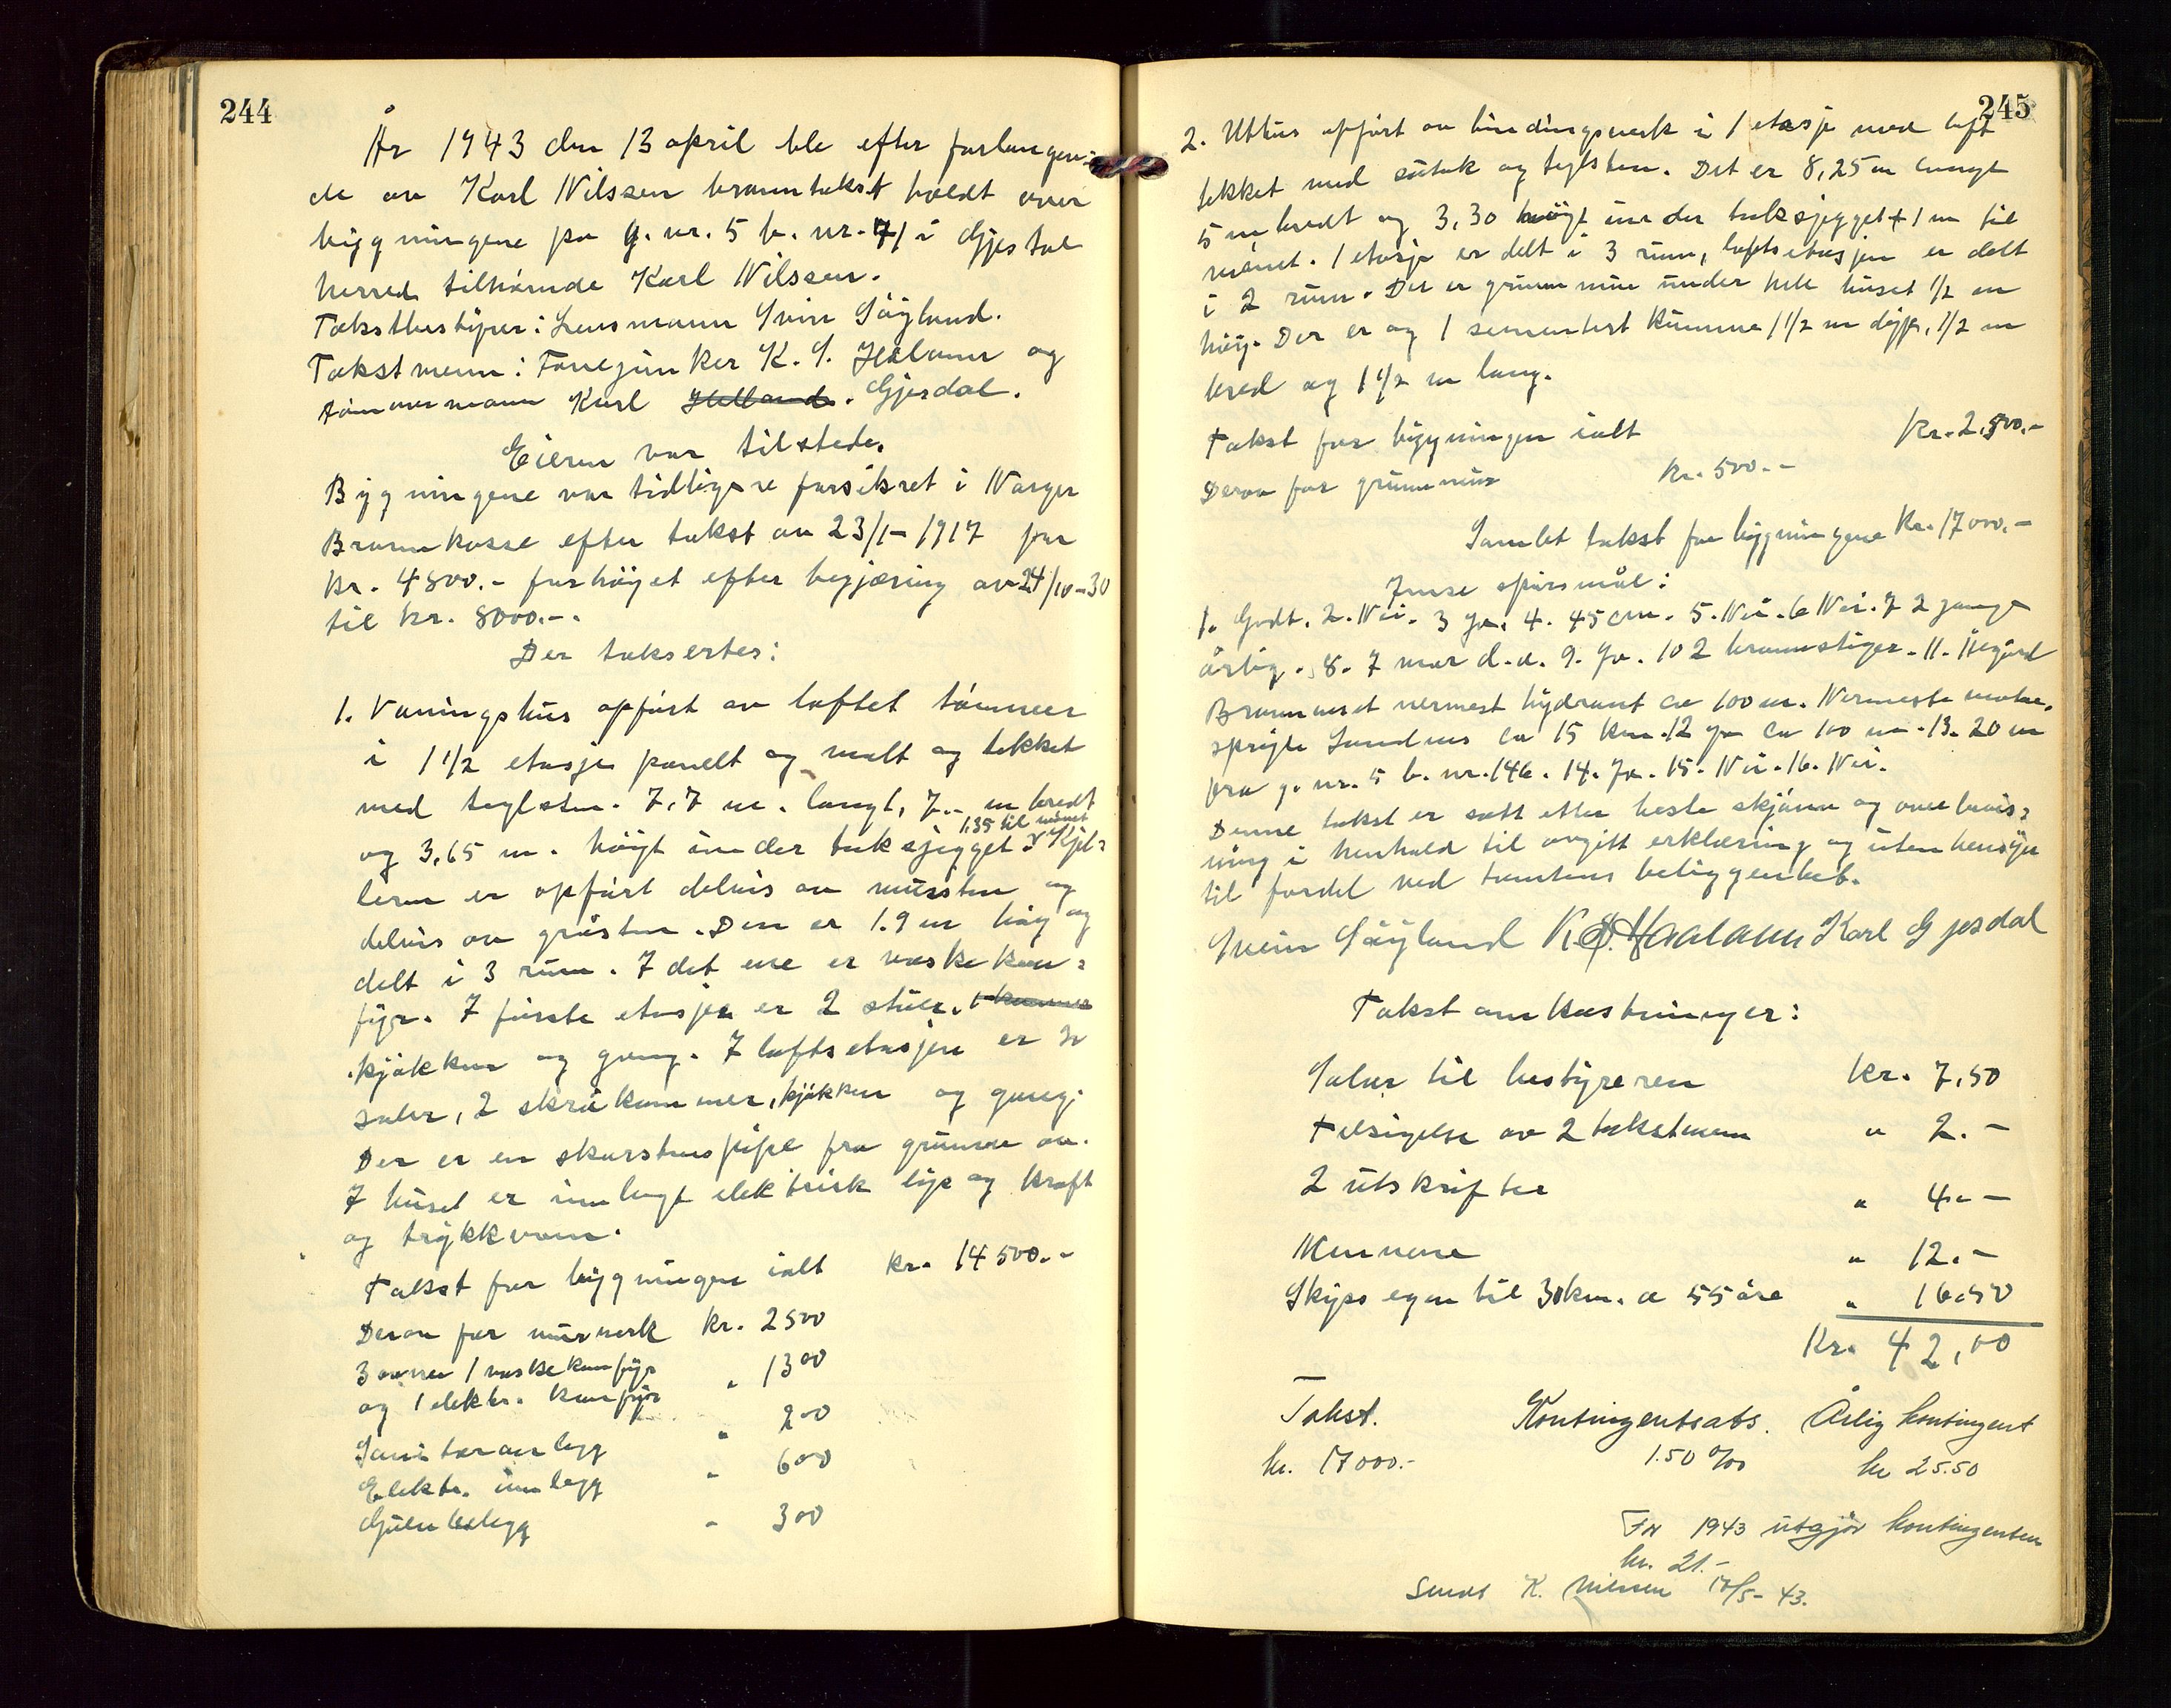 244
År 1943 den 13 april ble efter forlangen-
de av Karl Nilssen branntakst holdt over
bygningene på g. nr. 5 b. nr. 71 i Gjestal
herred tilhörende Karl Nilssen.
Takstbestyrer: Lensmann Svein Söyland.
Takstmenn: Fanejunker K. S. Haaland og
tömmermann Karl Helland. Gjesdal.
Eieren var tilstede.
Bygningene var tidligere forsikret i Norges
Brannkasse efter takst av 23/1-1917 for
kr. 4800.- forhöyet efter begjæring av 24/10-30
til kr. 8000.-.
Der takseres:
1. Våningshus opfört av laftet tömmer
i 1 1/2 etasje panelt og malt og tekket
med teglsten. 7,7 m. langt, 7.- m bredt
og 3,65 m. höyt under takskjegget. 1.35 til mönet Kjel-
leren er opfört delvis av mursten og
delvis av gråsten. Den er 1.9 m höy og
delt i 3 rum. I det ene er vaskekom-
fyr. I förste etasje er 2 stuer, 1 kammer
kjökken og gang. I loftsetasjen er 2
saler, 2 skråkammer, kjökken og gang.
Der er en skorstenspipe fra grunnen av.
I huset er innlagt elektrisk lys og kraft
og trykkvann.
Takst for bygningen ialt kr. 14 500.-
Derav for murverk kr. 2500
3 ovner 1 vaskekomfyr
og 1 elektr. komfyr " 1300
Sanitæranlegg " 200
Elektr. innlegg " 600
Gulvbelegg " 300
245
2. Uthus opfört av bindingsverk i 1 etasje med loft
tekket med sutak og teglsten. Det er 8,25 m langt
5 m bredt og 3,30 höyt under takskjegget + 1 m til
mönet. 1 etasje er delt i 3 rum, loftsetasjen er delt
i 2 rum. Det er grunnmur under hele huset 1/2 m
höy. Der er og 1 sementert kumme 1 1/2 m dyp, 1 1/2 m
bred og 1 1/2 m lang.
Takst for bygningen ialt Kr. 2.500.-
Derav for grunnmur kr. 500.-
Samlet takst for bygningene Kr. 17000.-
Innse spörsmål:
1. Godt. 2. Nei. 3 Ja. 4. 45 cm. 5. Nei. 6 Nei. 7 2 ganger
årlig. 8. 7 mar d.a. 9. Ja. 10 2 brannstiger. 11. Ålgård
Brannvæsen nermest hydrant ca 100 m. Nermeste motor-
spröyte Sandnes ca 15 km. 12 Ja ca 100 m. 13. 20 m
fra g. nr. 5 b. nr. 146. 14. Ja. 15. Nei. 16. Nei.
Denne takst er satt etter beste skjönn og overbevis-
ning i henhold til avgitt erklæring og uten hensyn
til fordel ved tomtens beliggenhet.
Svein Söyland K. S. Haaland Karl Gjesdal
Takstomkostninger:
Salær til bestyreren kr. 7,50
Tilsigelse av 2 takstmenn " 2.-
2 utskrifter " 4.-
Mennene " 12.-
Skyss egen bil 30 km. a 55 öre " 16.50
Kr. 42,00
Takst. Kontingentsats. Årlig kontingent
kr. 17000.- 1.50 ‰ kr 25.50
For 1943 utgjör kontingenten
kr. 21.-
Sendt K. Nilssen 14/5-43.